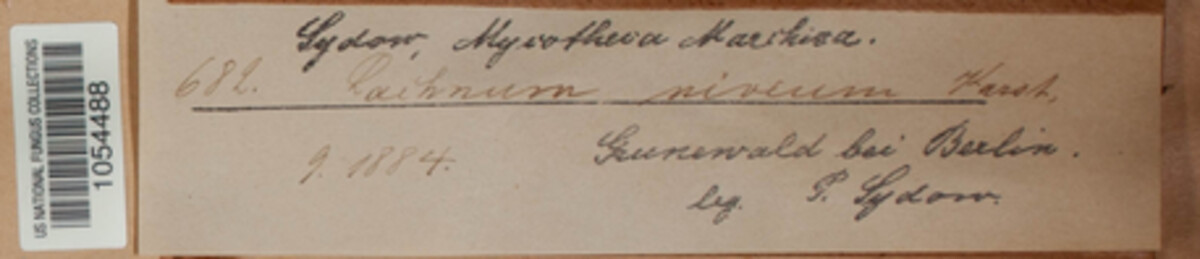 US NATIONAL FUNGUS COLLECTIONS
1054488
Sydow, Mycotheca Marchica.
682. Lachnum niveum Karst.
9. 1884.
Grunewald bei Berlin.
leg. P. Sydow.